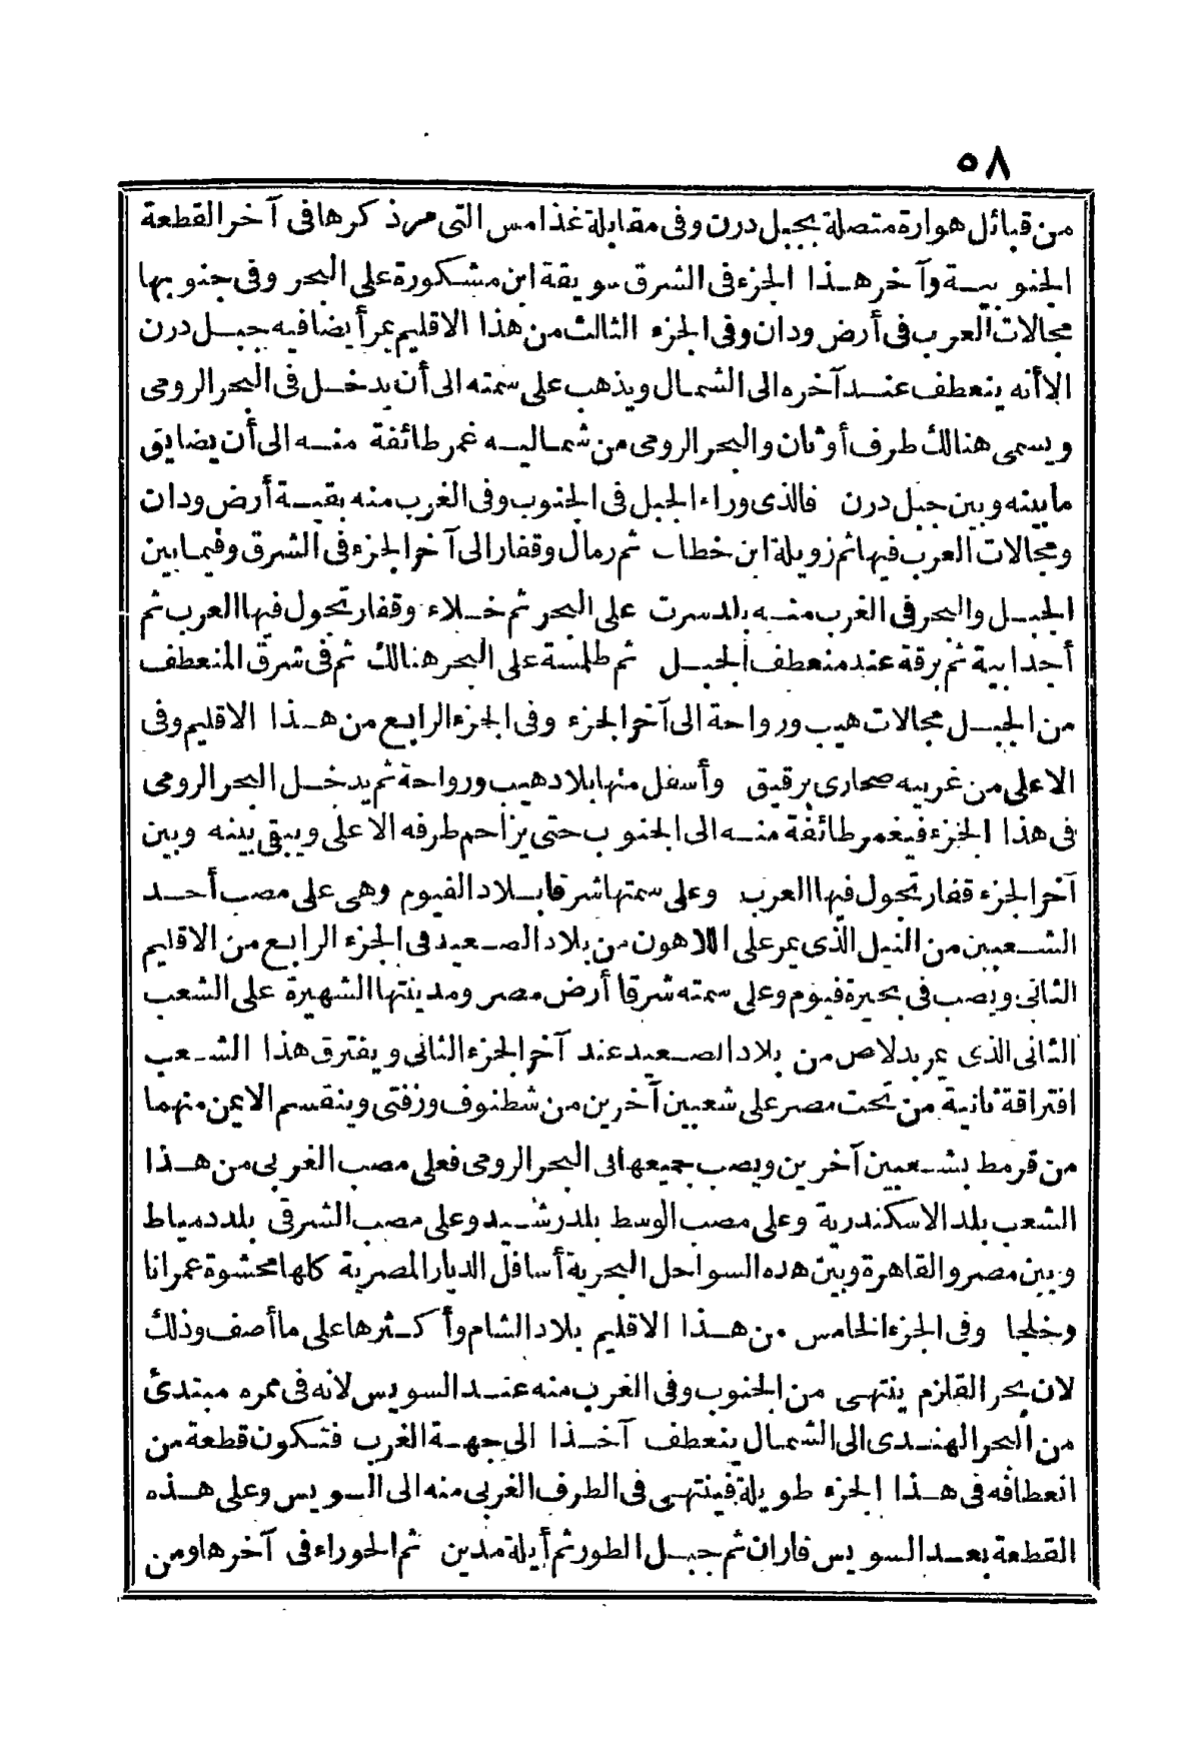 ٥٨
من قبائل هوارة متصلة بجبل درن وفى مقابلة غذامس التى مر ذكرها فى آخر القطعة
الجنوبية وآخر هذا الجزء فى الشرق سويقة ابن مشكورة على البحر وفى جنوبها
مجالات العرب فى أرض ودان وفى الجزء الثالث من هذا الاقليم يمر أيضا فيه جبل درن
الا أنه ينعطف عند آخره الى الشمال ويذهب على سمته الى أن يدخل فى البحر الرومى
ويسمى هنالك طرف أوثان والبحر الرومى من شماليه غمر طائفة منه الى أن يضايق
ما بينه وبين جبل درن فالذى وراء الجبل فى الجنوب وفى الغرب منه بقية أرض ودان
ومجالات العرب فيها ثم زويلة ابن خطاب ثم رمال وقفار الى آخر الجزء فى الشرق وفيما بين
الجبل والبحر فى الغرب منه بلد سرت على البحر ثم خلاء وقفار تجول فيها العرب ثم
أجدابية ثم برقة عند منعطف الجبل ثم طلمسة على البحر هنالك ثم فى شرق المنعطف
من الجبل مجالات هيب ورواحة الى آخر الجزء وفى الجزء الرابع من هذا الاقليم وفى
الاعلى من غربيه صحارى برقيق وأسفل منها بلاد هيب ورواحة ثم يدخل البحر الرومى
فى هذا الجزء فيغمر طائفة منه الى الجنوب حتى يزاحم طرفه الاعلى ويبقى بينه وبين
آخر الجزء قفار تجول فيها العرب وعلى سمتها شرقا بلاد الفيوم وهى على مصب أحد
الشعبين من النيل الذى يمر على اللاهون من بلاد الصعيد فى الجزء الرابع من الاقليم
الثانى ويصب فى بحيرة فيوم وعلى سمته شرقا أرض مصر ومدينتها الشهيرة على الشعب
الثانى الذى يمر بدلاص من بلاد الصعيد عند آخر الجزء الثانى ويفترق هذا الشعب
افتراقة ثانية من تحت مصر على شعبين آخرين من شطنوف وزفتى وينقسم الايمن منهما
من قرمط بشعبين آخرين ويصب جميعها فى البحر الرومى فعلى مصب الغربى من هذا
الشعب بلد الاسكندرية وعلى مصب الوسط بلد رشيد وعلى مصب الشرقى بلد دمياط
وبين مصر والقاهرة وبين هذه السواحل البحرية أسافل الديار المصرية كلها محشوة عمرانا
وخلجا وفى الجزء الخامس من هذا الاقليم بلاد الشام وأكثرها على ما أصف وذلك
لان بحر القلزم ينتهى من الجنوب وفى الغرب منه عند السويس لانه فى ممره مبتدئ
من البحر الهندى الى الشمال ينعطف آخذا الى جهة الغرب فتكون قطعة من
انعطافه فى هذا الجزء طويلة فينتهى فى الطرف الغربى منه الى السويس وعلى هذه
القطعة بعد السويس فاران ثم جبل الطور ثم أيلة مدين ثم الحوراء فى آخرها ومن